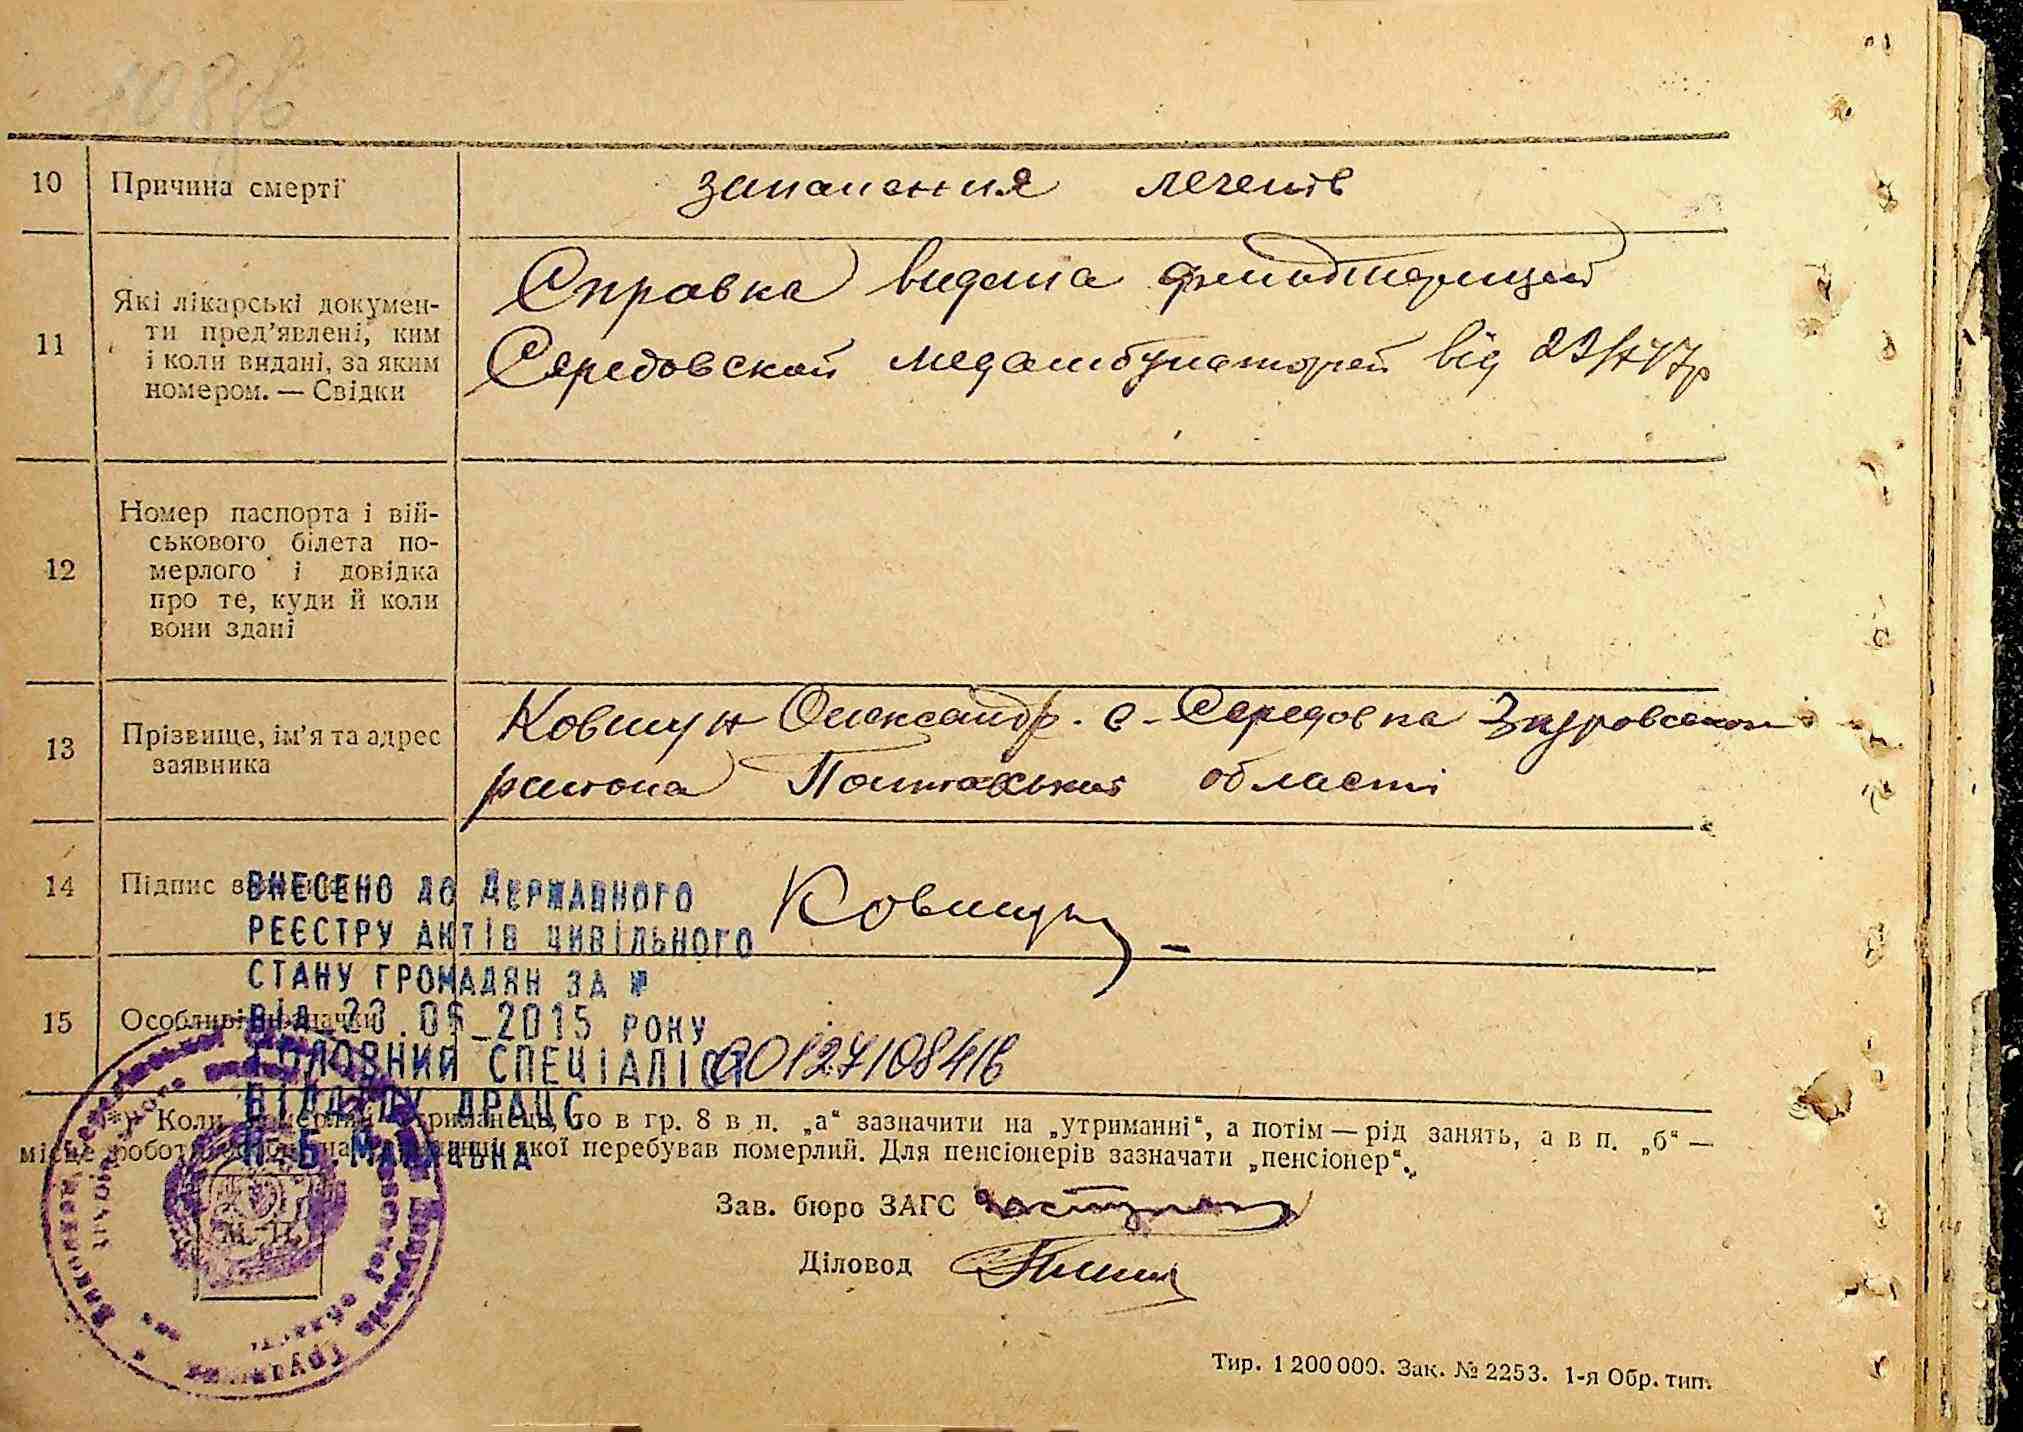 10 Причина смерті запалення легенів
11 Які лікарські докумен-
ти пред’явлені, ким
і коли видані, за яким
номером. — Свідки
Справка видана фельдшерицей
Середовской медамбулаторей від
12 Номер паспорта і вій-
ськового білета по-
мерлого і довідка
про те, куди й коли
вони здані
13 Прізвище, ім’я та адрес
заявника
Ковтун Олександр. с. Середовка Згуровского
района Полтавської області
14 Підпис Ковтун
15 Особливі
ВНЕСЕНО ДО ДЕРЖАВНОГО
РЕЄСТРУ АКТІВ ЦИВІЛЬНОГО
СТАНУ ГРОМАДЯН ЗА №
ВІД 23.06-2015 РОКУ
ГОЛОВНИЙ СПЕЦІАЛІСТ
ВІДДІЛУ ДРАЦС
00127108416
*) Коли померлий утриманець, то в гр. 8 в п. „а“ зазначити на „утриманні“, а потім — рід занять, а в п. „б“ —
місце роботи якої перебував померлий. Для пенсіонерів зазначати „пенсіонер“.
Зав. бюро ЗАГС
Діловод
Тир. 1 200 000. Зак. № 2253. 1-я Обр. тип.